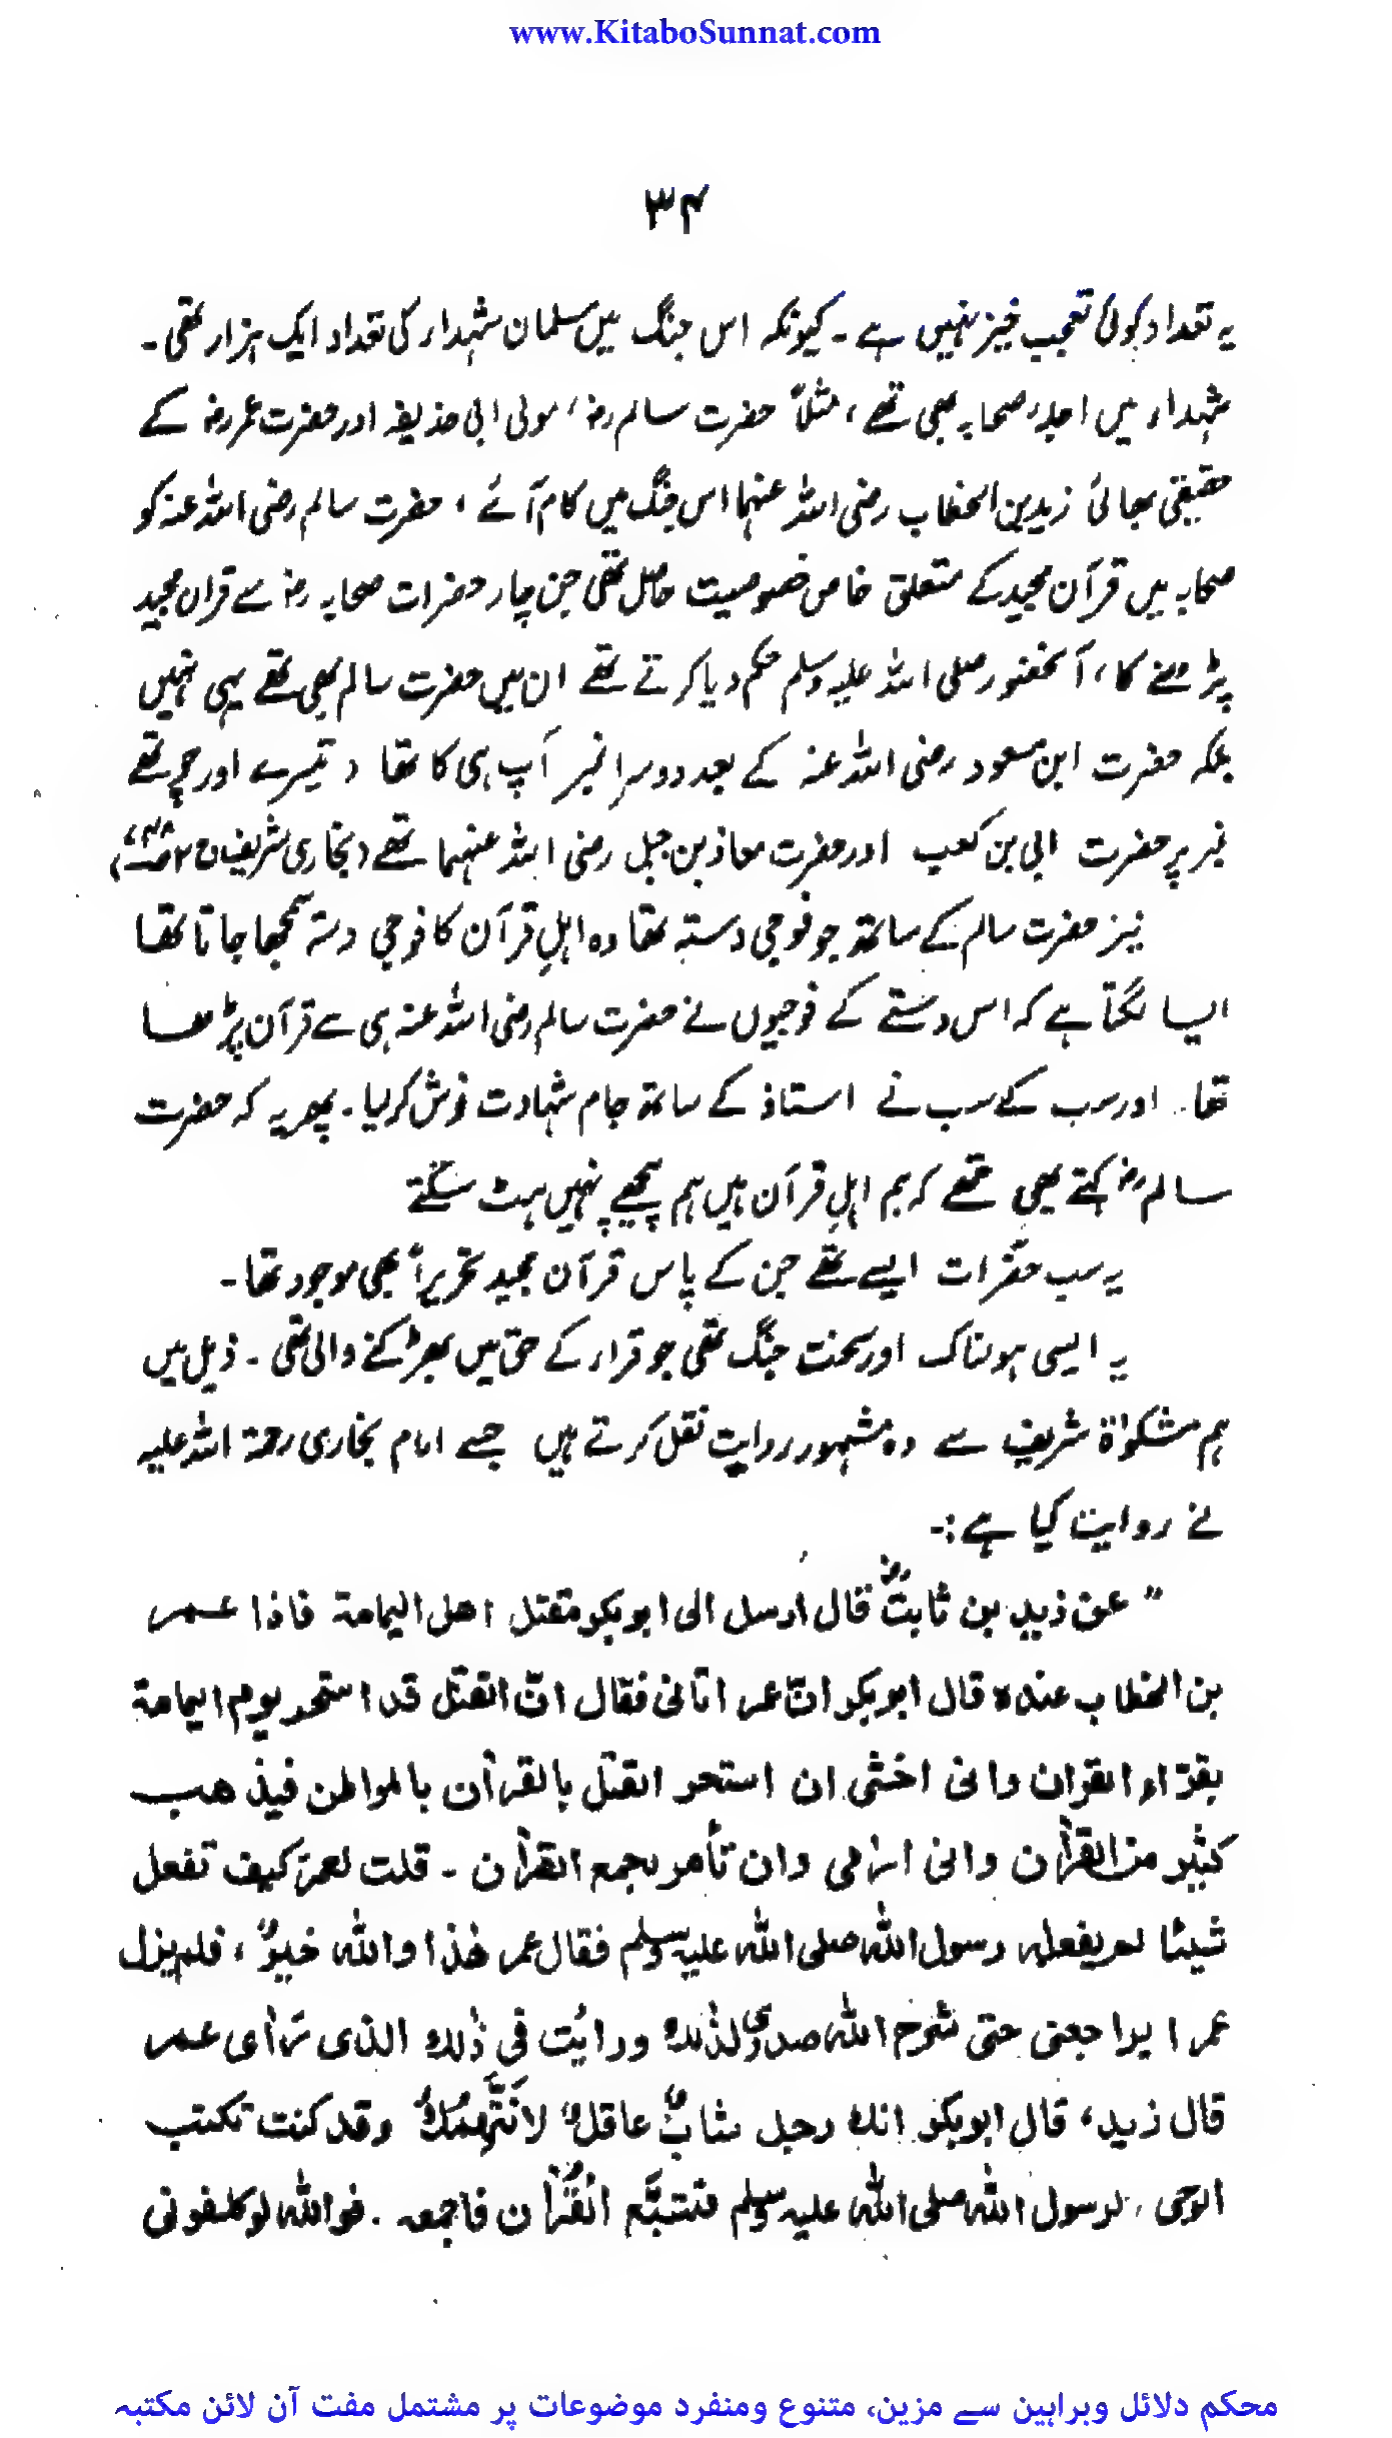 www.KitaboSunnat.com
۳۴
یہ تعداد کوئی تعجب خیز نہیں ہے ۔ کیونکہ اس جنگ میں مسلمان شہداء کی تعداد ایک ہزار تھی ۔
شہداء میں اجلہ صحابہ بھی تھے ، مثلاً حضرت سالم رضہ ، مولی ابی حذیفہ اور حضرت عمر رضہ کے
حقیقی بھائی زید بن الخطاب رضی اللہ عنہما اس جنگ میں کام آئے ، حضرت سالم رضی اللہ عنہ کو
صحابہ میں قرآن مجید کے متعلق خاص خصوصیت حاصل تھی جن چار حضرات صحابہ رضہ سے قران مجید
پڑھنے کا ، آنحضور صلی اللہ علیہ وسلم حکم دیا کرتے تھے ان میں حضرت سالم بھی تھے یہی نہیں
بلکہ حضرت ابن مسعود رضی اللہ عنہ کے بعد دوسرا نمبر آپ ہی کا تھا ( تیسرے اور چوتھے
نمبر پر حضرت ابی بن کعب اور حضرت معاذ بن جبل رضی اللہ عنہما تھے (بخاری شریف ج ۲
نیز حضرت سالم کے ساتھ جو فوجی دستہ تھا وہ اہلِ قرآن کا فوجی دستہ سمجھا جاتا تھا
ایسا لگتا ہے کہ اس دستے کے فوجیوں نے حضرت سالم رضی اللہ عنہ ہی سے قرآن پڑھا
تھا ۔ اور سب کے سب نے استاذ کے ساتھ جام شہادت نوش کر لیا ۔ پھر یہ کہ حضرت
سالم رضہ کہتے بھی تھے کہ ہم اہلِ قرآن ہیں ہم پیچھے نہیں ہٹ سکتے
یہ سب حضرات ایسے تھے جن کے پاس قرآن مجید تحریراً بھی موجود تھا ۔
یہ ایسی ہولناک اور سخت جنگ تھی جو قراء کے حق میں بھڑکنے والی تھی ۔ ذیل میں
ہم مشکوٰۃ شریف سے وہ مشہور روایت نقل کرتے ہیں جسے امام بخاری رحمۃ اللہ علیہ
نے روایت کیا ہے :۔
" عن زید بن ثابتؓ قال أرسل الی ابو بکر مقتل اھل الیمامۃ فاذا عمر
بن الخطاب عندہ قال ابو بکر انّ عمر اتانی فقال انّ القتل قد استحر یوم الیمامۃ
بقرّاء القران وانی اخشی ان استحر القتل بالقرأن بالمواطن فیذھب
کثیر من القرأن وانی اریٰ ان تأمر بجمع القرأن ۔ قلت لعمر کیف تفعل
شیئا لم یفعلہ رسول اللہ صلی اللہ علیہ وسلم فقال عمر ھٰذا واللہ خیرٌ ، فلم یزل
عمر یراجعنی حتی شرح اللہ صدری لذٰلک ورایت فی ذٰلک الذی رأی عمر
قال زید ، قال ابو بکر انک رجل شابٌ عاقلٌ لا نَتَّهِمُکَ وقد کنت تکتب
الوحی لرسول اللہ صلی اللہ علیہ وسلم فتتبَّع القُرأن فاجمعہ ۔ فواللہ لو کلفونی
محکم دلائل وبراہین سے مزین، متنوع ومنفرد موضوعات پر مشتمل مفت آن لائن مکتبہ